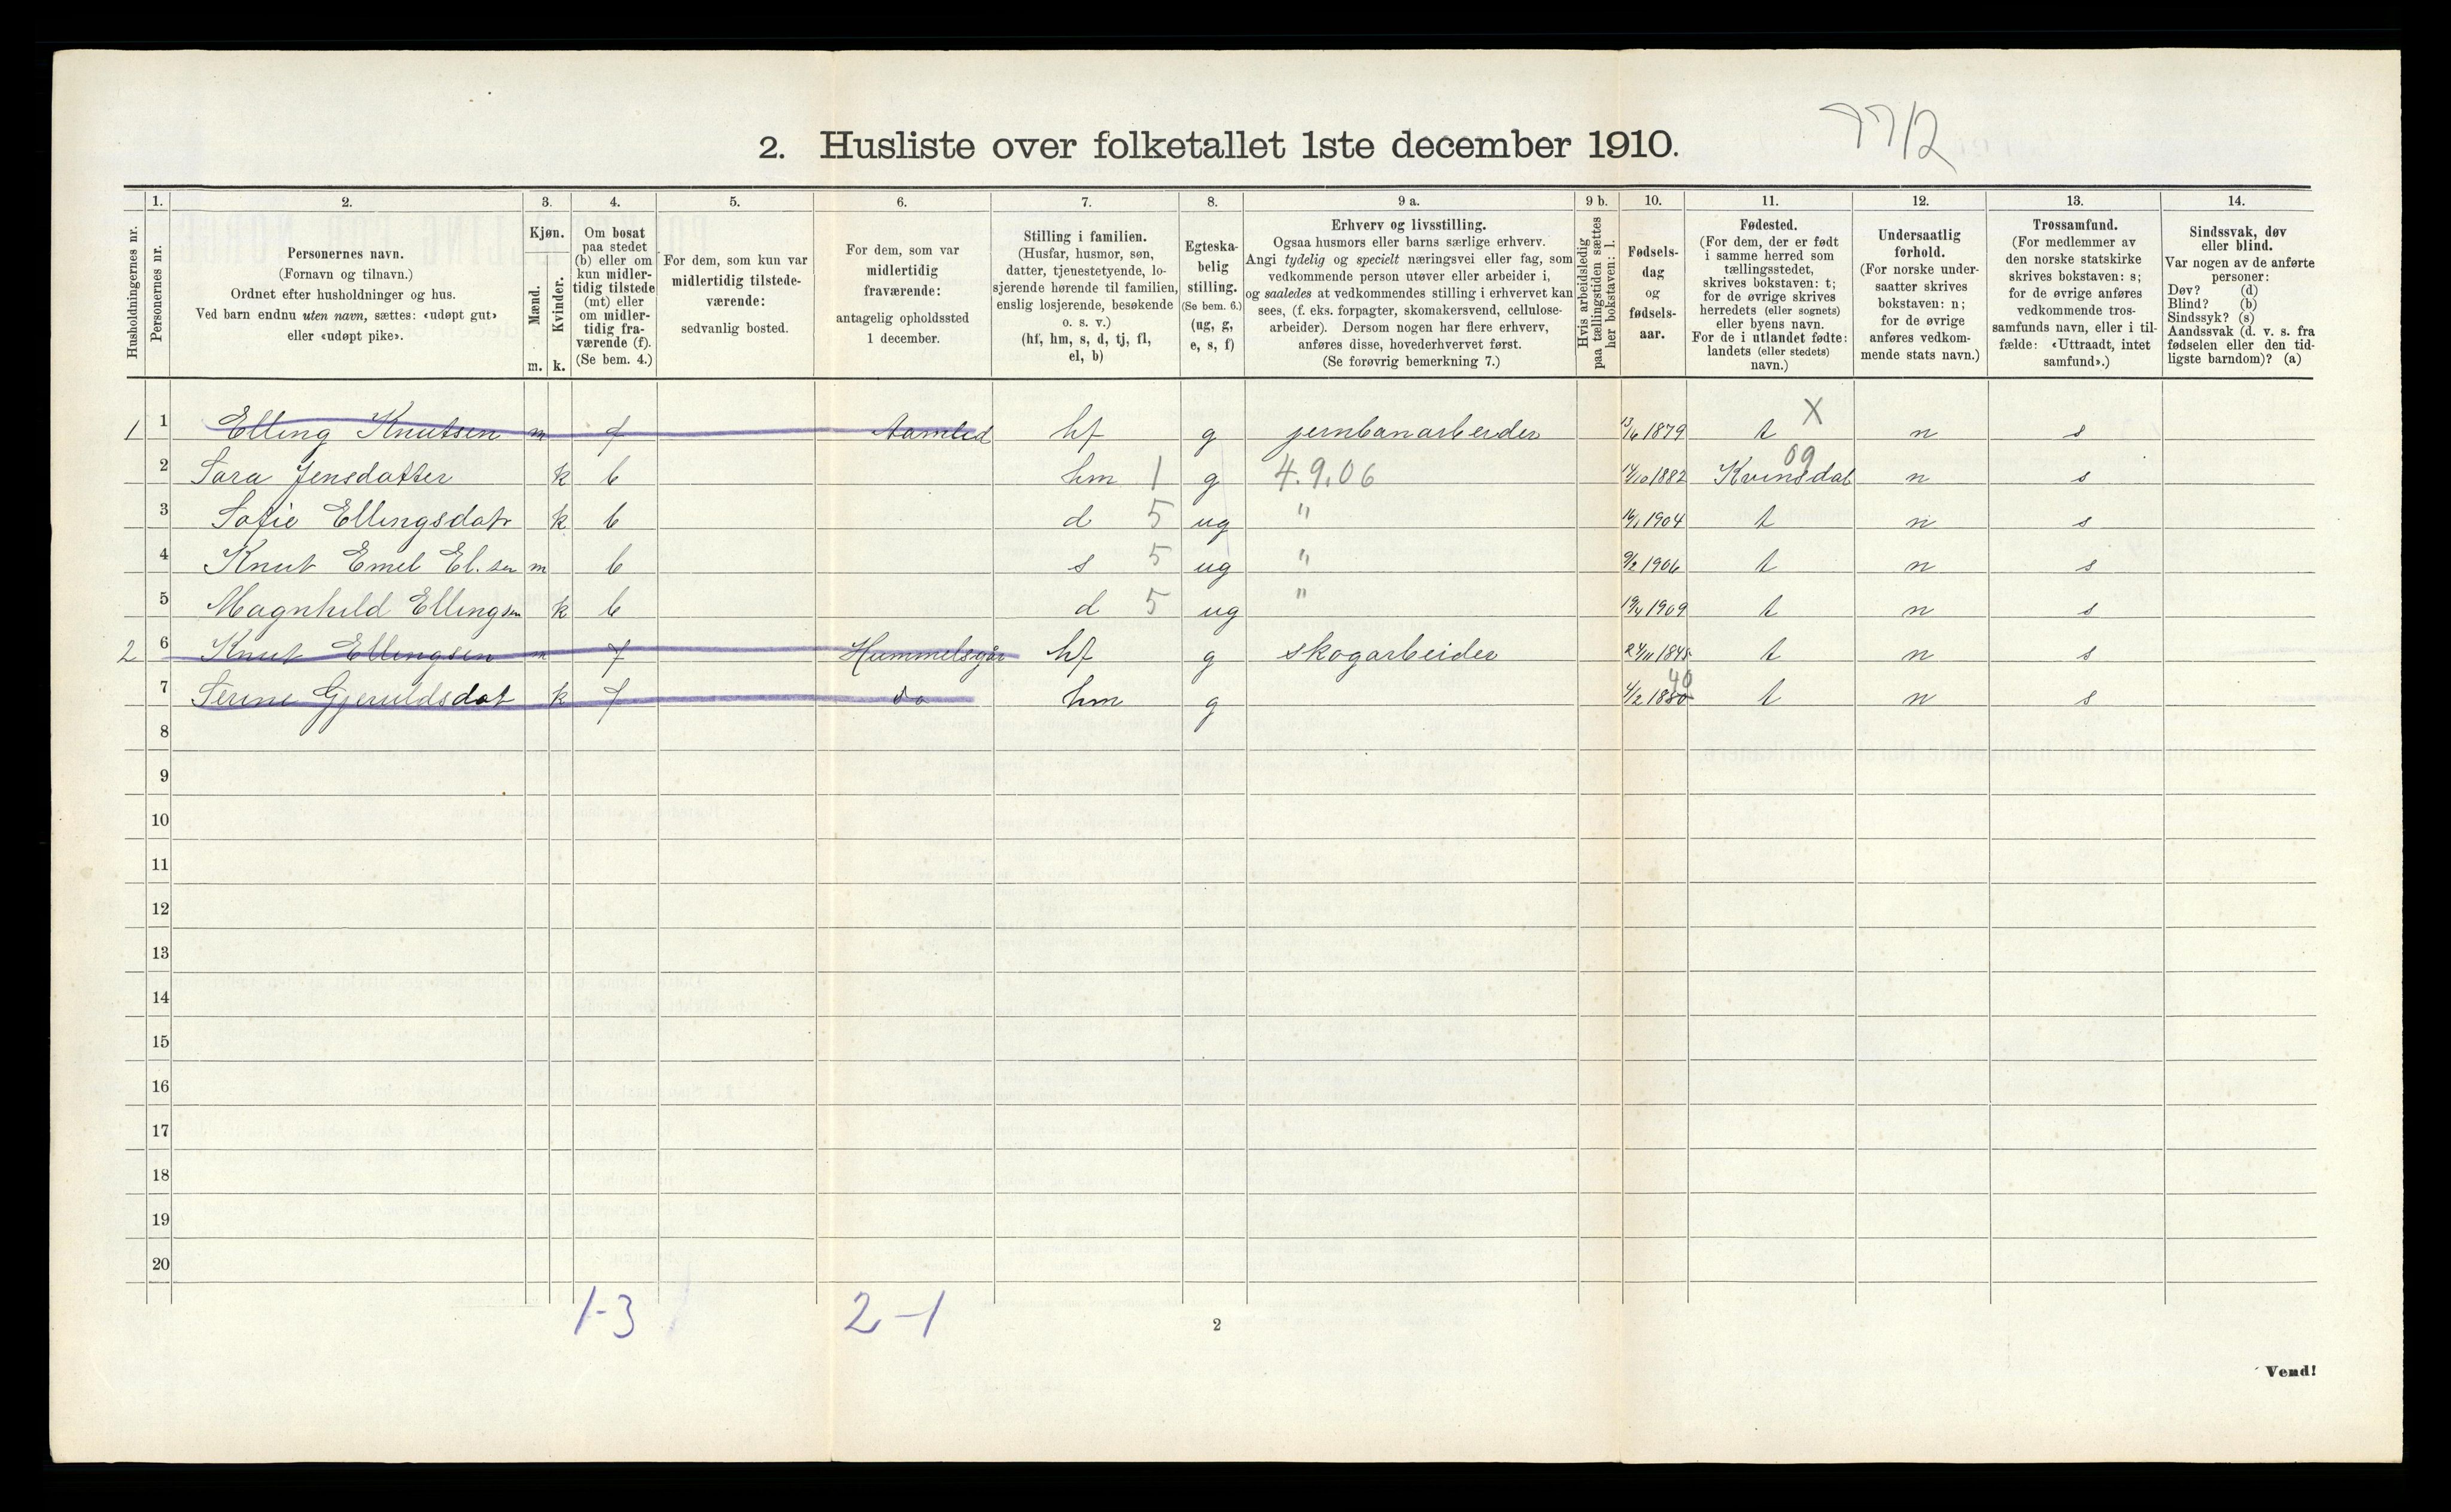 7712
2. Husliste over folketallet 1ste december 1910.
Husholdningernes nr.
1.
Personernes nr.
2.
Personernes navn.
(Fornavn og tilnavn.)
Ordnet efter husholdninger og hus.
Ved barn endnu uten navn, sættes: «udøpt gut»
eller «udøpt pike».
3.
Kjøn.
Mænd.
Kvinder.
m. k.
4.
Om bosat
paa stedet
(b) eller om
kun midler-
tidig tilstede
(mt) eller
om midler-
tidig fra-
værende (f).
(Se bem. 4.)
5.
For dem, som kun var
midlertidig tilstede-
værende:
sedvanlig bosted.
6.
For dem, som var
midlertidig
fraværende:
antagelig opholdssted
1 december.
7.
Stilling i familien.
(Husfar, husmor, søn,
datter, tjenestetyende, lo-
sjerende hørende til familien,
enslig losjerende, besøkende
o. s. v.)
(hf, hm, s, d, tj, fl,
el, b)
8.
Egteska-
belig
stilling.
(Se bem. 6.)
(ug, g,
e, s, f)
9 a.
Erhverv og livsstilling.
Ogsaa husmors eller barns særlige erhverv.
Angi tydelig og specielt næringsvei eller fag, som
vedkommende person utøver eller arbeider i,
og saaledes at vedkommendes stilling i erhvervet kan
sees, (f. eks. forpagter, skomakersvend, cellulose-
arbeider). Dersom nogen har flere erhverv,
anføres disse, hovederhvervet først.
(Se forøvrig bemerkning 7.)
9 b.
Hvis arbeidsledig
paa tællingstiden sættes
her bokstaven: l.
10.
Fødsels-
dag
og
fødsels-
aar.
11.
Fødested.
(For dem, der er født
i samme herred som
tællingsstedet,
skrives bokstaven: t;
for de øvrige skrives
herredets (eller sognets)
eller byens navn.
For de i utlandet fødte:
landets (eller stedets)
navn.)
12.
Undersaatlig
forhold.
(For norske under-
saatter skrives
bokstaven: n;
for de øvrige
anføres vedkom-
mende stats navn.)
13.
Trossamfund.
(For medlemmer av
den norske statskirke
skrives bokstaven: s;
for de øvrige anføres
vedkommende tros-
samfunds navn, eller i til-
fælde: «Uttraadt, intet
samfund».)
14.
Sindssvak, døv
eller blind.
Var nogen av de anførte
personer:
Døv? (d)
Blind? (b)
Sindssyk? (s)
Aandssvak (d. v. s. fra
fødselen eller den tid-
ligste barndom)? (a)
1 1 Elling Knutsen m f Aamlid hf g jernbanarbeider 13/6 1879 t X n s
2 Sara Jensdatter k b hm 1 g 4.9.06 14/10 1882 Kvinsdal 09 n s
3 Sofie Ellingsdatr k b d 5 ug " 16/1 1904 t n s
4 Knut Emel El.sen m b s 5 ug " 9/2 1906 t n s
5 Magnhild Ellingsn k b d 5 ug " 19/4 1909 t n s
2 6 Knut Ellingsen m f Hummelsgår hf g skogarbeider 24/11 1848 t n s
7 Serine Gjeruldsdat k f do hm g 4/2 1880 40 t n s
8
9
10
11
12
13
14
15
16
17
18
19
20
1-3
2-1
2
Vend!